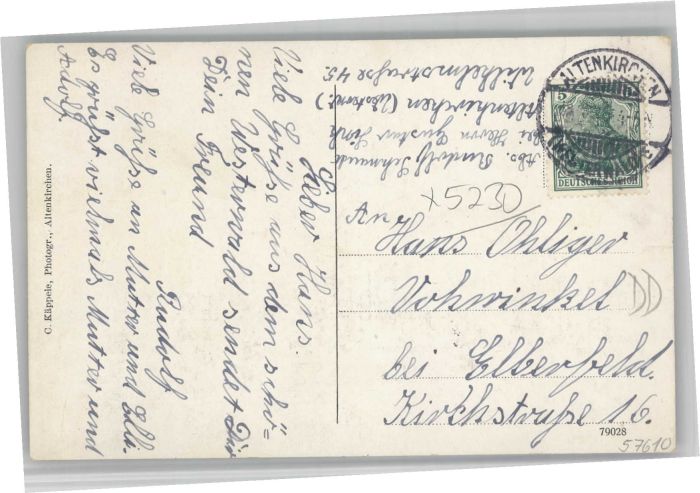 Lieber Hans.
Viele Grüße aus dem schö=
nen Westerwald sendet Dir
Dein Freund
Rudolf
Viele Grüße an Mutter und Elli.
Es grüßt vielmals Mutter und
Adolf
C. Käppele, Photogr., Altenkirchen.
Abs. Rudolf Schmidt
bei Herrn Gustav
Altenkirchen (Westerw.)
Wilhelmstraße 45.
ALTENKIRCHEN
(WESTERWALD)
5
DEUTSCHES REICH
x 5230
An
Hans Ohliger
Vohwinkel
bei Elberfeld.
Kirchstraße 16.
79028
57610